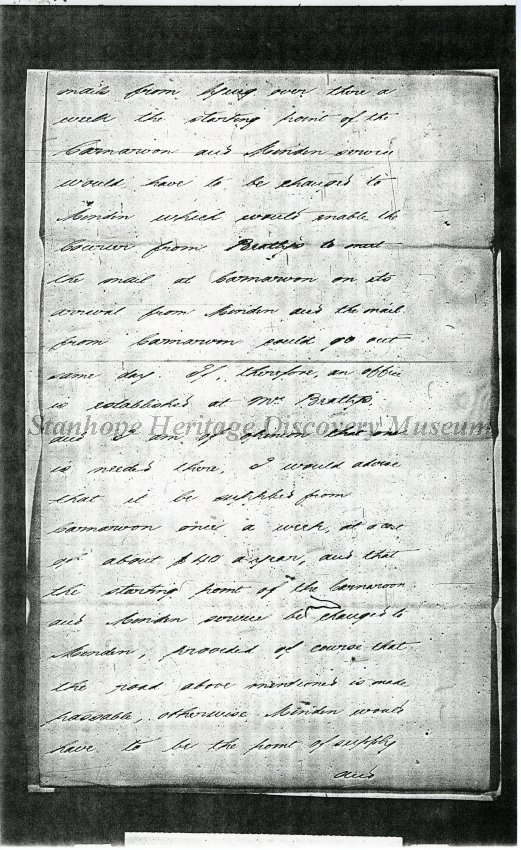 mails from lying over there a
week the starting point of the
Carnarvon and Minden service
would have to be changed to
Minden which would enable the
Courier from Braths to meet
the mail at Carnarvon on its
arrival from Minden and the mail
from Carnarvon could go out
same day. If, therefore, an office
is established at Mr Braths,
Stanhope Heritage Discovery Museum
and I am of opinion that one
is needed there, I would advise
that it be supplied from
Carnarvon once a week, at a cost
of about $40 a year, and that
the starting point of the Carnarvon
and Minden service be changed to
Minden, provided of course that
the road above mentioned is made
passable, otherwise Minden would
have to be the point of supply
and